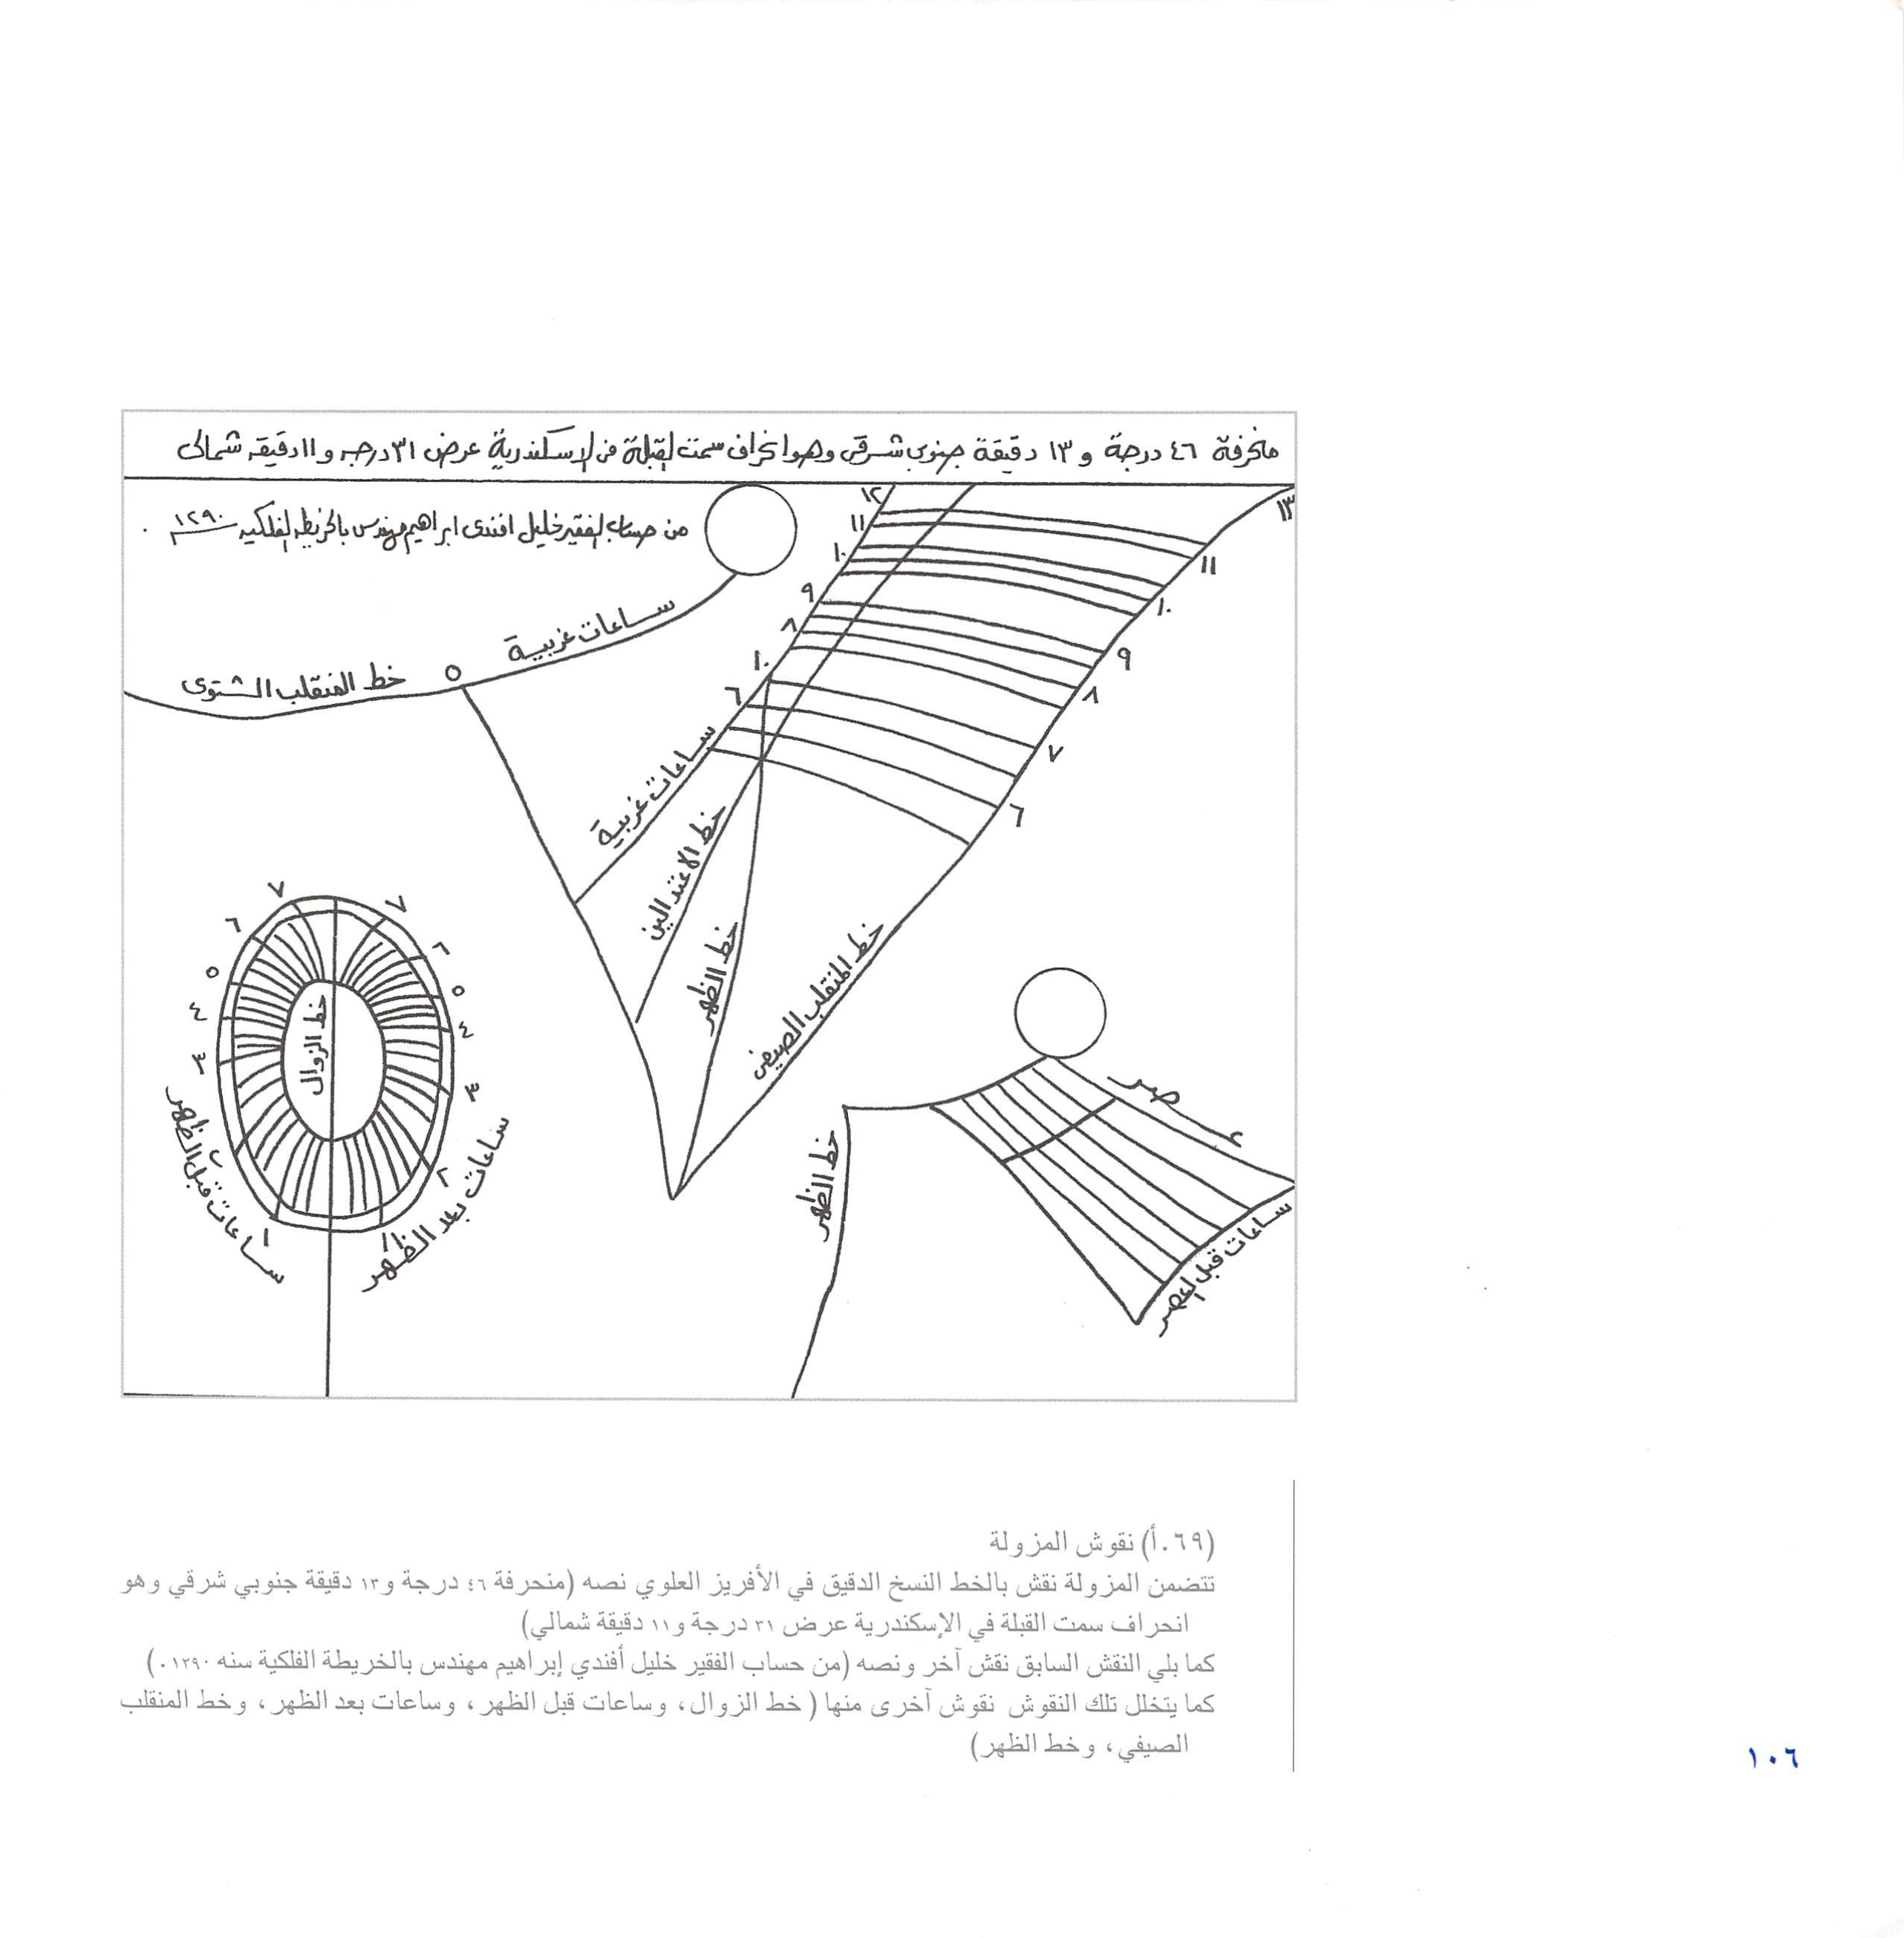 منحرفة ٤٦ درجة و ١٣ دقيقة جنوبى شرقى وهو انحراف سمت القبلة فى الإسكندرية عرض ٣١ درجه و ١١ دقيقه شمالى
من حساب الفقير خليل افندى ابراهيم مهندس بالخريطه الفلكيه سنه ١٢٩٠
١٢
١١
١٠
٩
٨
١٠
٦
١٣
١١
١٠
٩
٨
٧
٦
ساعات غربية
٥
خط المنقلب الشتوى
ساعات غربية
خط الاعتدالين
خط الظهر
خط المنقلب الصيفى
٧
٦
٥
٤
٣
٢
١
٧
٦
٥
٤
٣
٢
١
خط الزوال
ساعات قبل الظهر
ساعات بعد الظهر
خط الظهر
عصر
ساعات قبل العصر
(٦٩.أ) نقوش المزولة
تتضمن المزولة نقش بالخط النسخ الدقيق في الأفريز العلوي نصه (منحرفة ٤٦ درجة و١٣ دقيقة جنوبي شرقي وهو
انحراف سمت القبلة في الإسكندرية عرض ٣١ درجة و١١ دقيقة شمالي)
كما يلي النقش السابق نقش آخر ونصه (من حساب الفقير خليل أفندي إبراهيم مهندس بالخريطة الفلكية سنه ١٢٩٠.)
كما يتخلل تلك النقوش نقوش آخرى منها ( خط الزوال، وساعات قبل الظهر، وساعات بعد الظهر، وخط المنقلب
الصيفي، وخط الظهر)
١٠٦